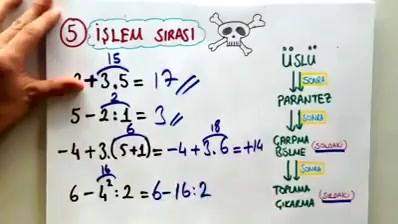 5 İŞLEM SIRASI
15
2+3.5=17
2
5-2:1=3
6 18
-4+3.(5+1)=-4+3.6=+14
16
6-4²:2=6-16:2
ÜSLÜ
SONRA
PARANTEZ
SONRA
ÇARPMA
BÖLME (SOLDAKİ)
SONRA
TOPLAMA
ÇIKARMA (SOLDAKİ)